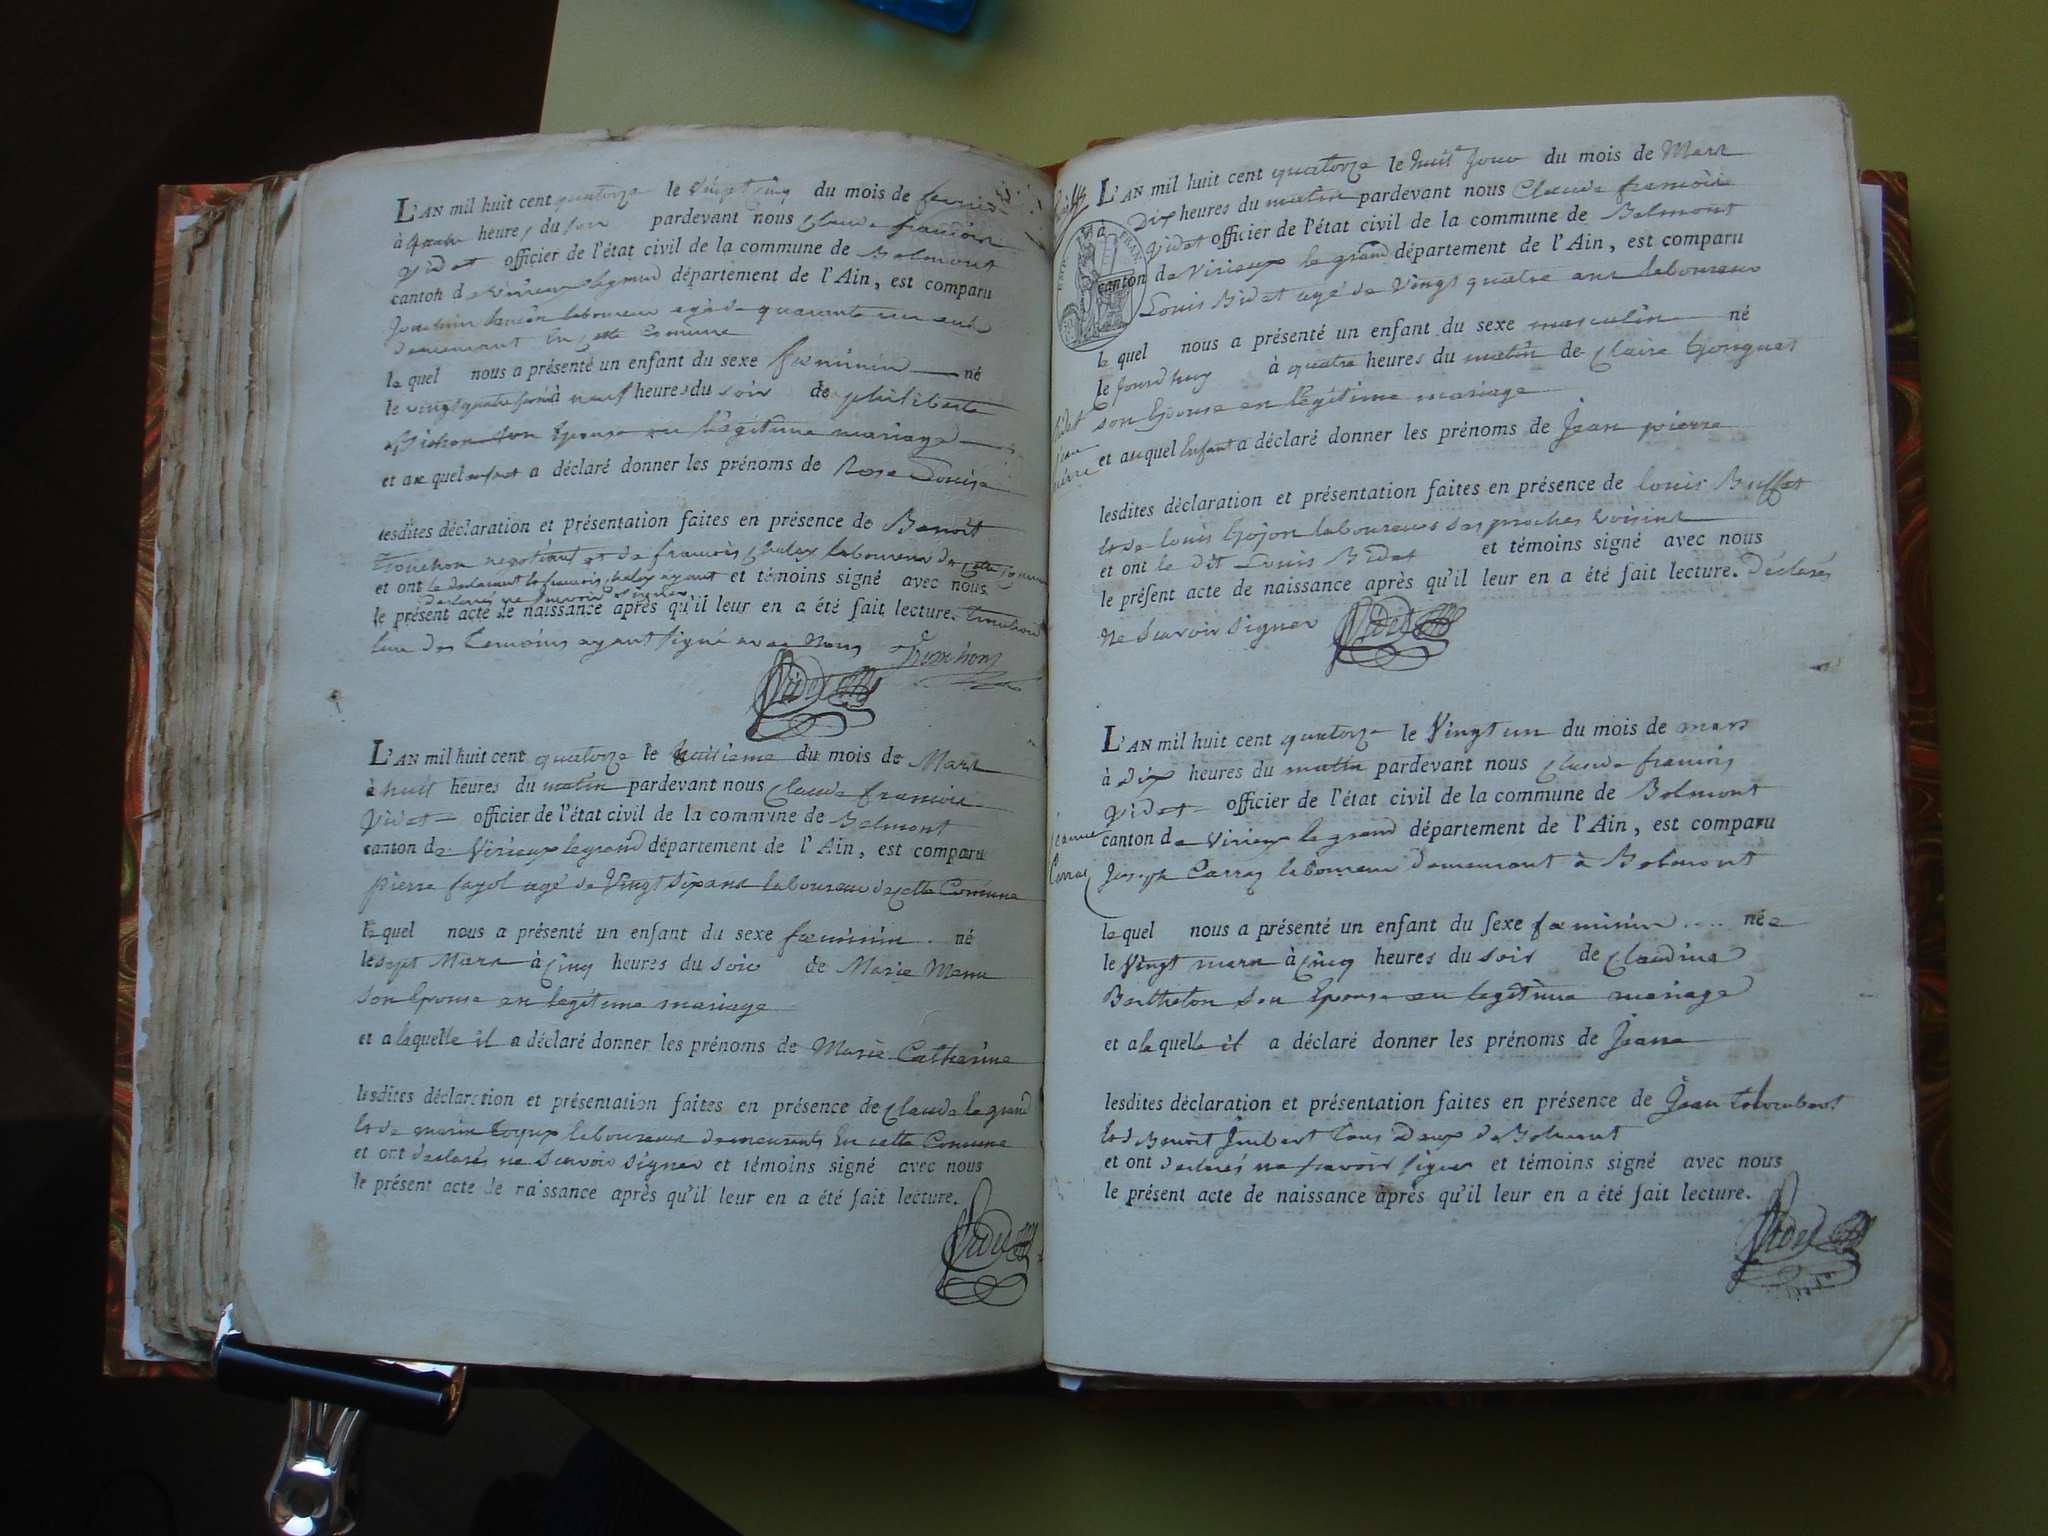 L'AN mil huit cent quatorze le vingt cinq du mois de fevrier
à quatre heures du soir pardevant nous Claude francois
Videt officier de l'état civil de la commune de Belmont
canton de Virieux le grand département de l'Ain, est comparu
Joachim laboureur agé de quarante un ans
demeurant En cette Comune
le quel nous a présenté un enfant du sexe fœminin né
le vingt quatre à neuf heures du soir de philiberte
son Epouse en légitime mariage
et au quel enfant a déclaré donner les prénoms de Rose Louise
lesdites déclaration et présentation faites en présence de Benoit
Trouchon negotiant et de francois laboureur de cette Comune
et ont le declarant et francois ayant et témoins signé avec nous
declarés ne sçavoir signer
le présent acte de naissance après qu'il leur en a été fait lecture. Trouchon
l'un des temoins ayant signé avec Nous Trouchon
Videt
L'AN mil huit cent quatorze le huitieme du mois de Mars
à huit heures du matin pardevant nous Claude francois
Videt officier de l'état civil de la commune de Belmont
canton de Virieux le grand département de l'Ain, est comparu
pierre fayol agé de Vingt six ans laboureur de cette Comune
le quel nous a présenté un enfant du sexe fœminin né
le sept Mars à cinq heures du soir de Marie
son Epouse en legitime mariage
et a laquelle il a déclaré donner les prénoms de Marie Catherine
lesdites déclaration et présentation faites en présence de Claude le grand
et de laboureurs demeurants En cette Comune
et ont declarés ne sçavoir signer et témoins signé avec nous
le présent acte de naissance après qu'il leur en a été fait lecture.
Videt
L'AN mil huit cent quatorze le huit Jour du mois de Mars
à Dix heures du matin pardevant nous Claude francois
Videt officier de l'état civil de la commune de Belmont
canton de Virieux le grand département de l'Ain, est comparu
Louis Bidat agé de Vingt quatre ans laboureur
le quel nous a présenté un enfant du sexe masculin né
le Jourd'huy à quatre heures du matin de Claire
son Epouse en légitime mariage
et au quel Enfant a déclaré donner les prénoms de Jean pierre
lesdites déclaration et présentation faites en présence de Louis Buffet
et de Louis Gojon laboureurs ses proches voisins
et ont le dit Louis Bidat et témoins signé avec nous
le présent acte de naissance après qu'il leur en a été fait lecture. declarés
ne sçavoir signer Videt
L'AN mil huit cent quatorze le Vingt un du mois de mars
à dix heures du matin pardevant nous Claude francois
Videt officier de l'état civil de la commune de Belmont
Jeanne
canton de Virieux le grand département de l'Ain, est comparu
Carraz
Joseph Carraz laboureur demeurant à Belmont
le quel nous a présenté un enfant du sexe fœminin .... née
le Vingt mars à cinq heures du soir de Claudine
Berthelon son Epouse en legitime mariage
et a la quelle il a déclaré donner les prénoms de Jeane
lesdites déclaration et présentation faites en présence de Jean
et de Benoit Imbert tous Deux de Belmont
et ont declarés ne sçavoir signer et témoins signé avec nous
le présent acte de naissance après qu'il leur en a été fait lecture.
Videt